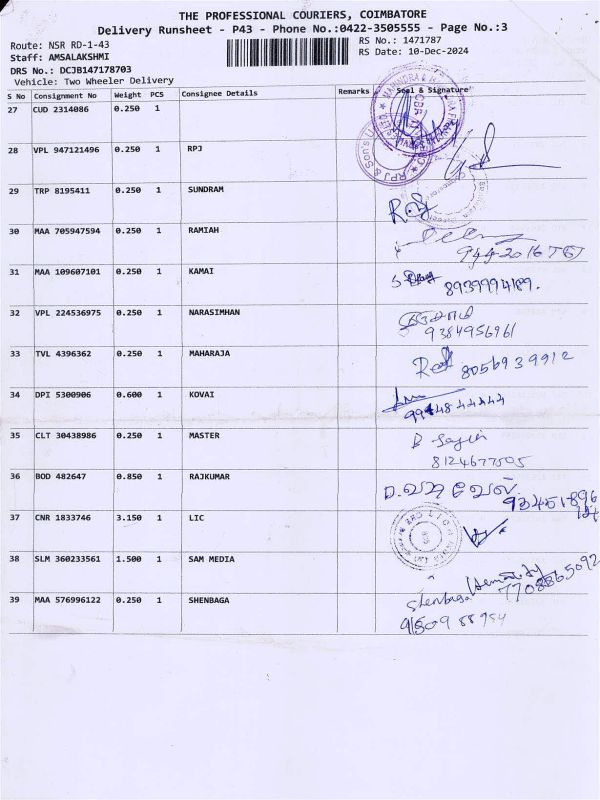 THE PROFESSIONAL COURIERS, COIMBATORE
Delivery Runsheet - P43 - Phone No.:0422-3505555 - Page No.:3
Route: NSR RD-1-43 RS No.: 1471787
Staff: AMSALAKSHMI RS Date: 10-Dec-2024
DRS No.: DCJB147178703
Vehicle: Two Wheeler Delivery
S No Consignment No Weight PCS Consignee Details Remarks Seal & Signature
27 CUD 2314086 0.250 1
28 VPL 947121496 0.250 1 RPJ
29 TRP 8195411 0.250 1 SUNDRAM
30 MAA 705947594 0.250 1 RAMIAH
31 MAA 109607101 0.250 1 KAMAI
8939994189.
32 VPL 224536975 0.250 1 NARASIMHAN
9384956961
33 TVL 4396362 0.250 1 MAHARAJA
8056939912
34 DPI 5300906 0.600 1 KOVAI
35 CLT 30438986 0.250 1 MASTER
8124677505
36 BOD 482647 0.850 1 RAJKUMAR
37 CNR 1833746 3.150 1 LIC
38 SLM 360233561 1.500 1 SAM MEDIA
7708865092
39 MAA 576996122 0.250 1 SHENBAGA
Shenbaga